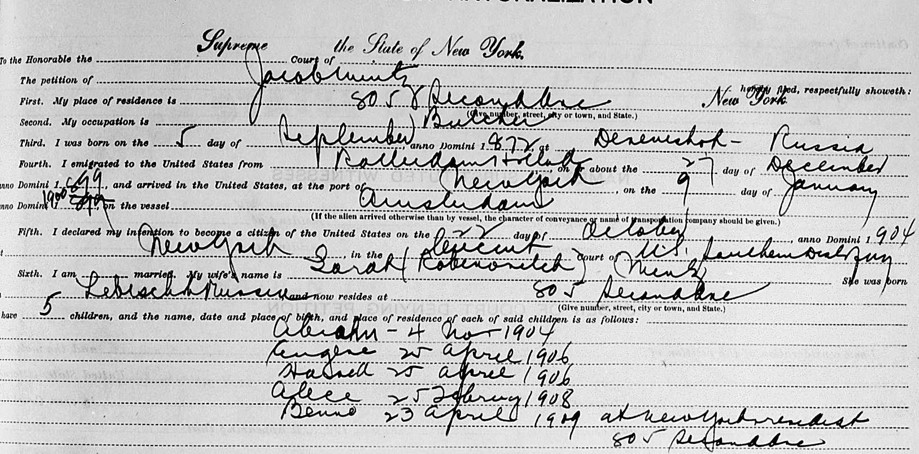 NATURALIZATION
To the Honorable the Supreme Court of the State of New York.
The petition of Jacob Mintz hereby filed, respectfully showeth:
First. My place of residence is 805 Second Ave New York
(Give number, street, city or town, and State.)
Second. My occupation is Butcher
Third. I was born on the 5 day of September anno Domini 1872 at Russia
Fourth. I emigrated to the United States from Rotterdam Holland, on or about the 27 day of December
anno Domini 1899, and arrived in the United States, at the port of New York, on the 9 day of January
anno Domini 1900 on the vessel Amsterdam
(If the alien arrived otherwise than by vessel, the character of conveyance or name of transportation company should be given.)
Fifth. I declared my intention to become a citizen of the United States on the 22 day of October, anno Domini 1904
New York in the Court of U.S. Southern Dist
Sixth. I am married. My wife's name is Sarah Mintz She was born
Russia and now resides at 805 Second Ave
(Give number, street, city or town, and State.)
have 5 children, and the name, date and place of birth, and place of residence of each of said children is as follows:
4 Nov 1904
Eugene 25 April 1906
25 April 1906
Alice 25 1908
Benno 23 April 1909 at New York resident
805 Second Ave